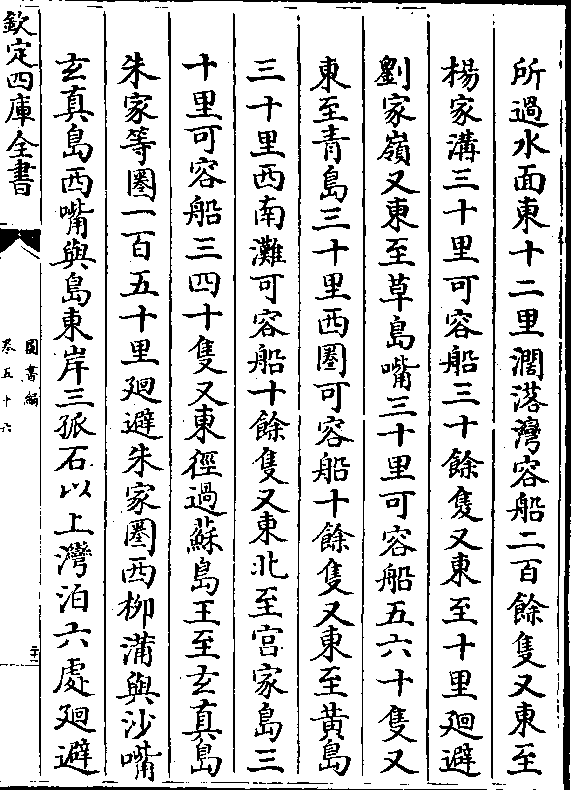 所過水面東十二里濶落灣容船二百餘隻又東至
楊家溝三十里可容船三十餘隻又東至十里廻避
劉家嶺又東至草島嘴三十里可容船五六十隻又
東至青島三十里西圏可容船十餘隻又東至黄島
三十里西南灘可容船十餘隻又東北至宫家島三
十里可容船三四十隻又東徑過蘇島王至玄真島
朱家等圏一百五十里廻避朱家圏西栁蒲與沙嘴
玄真島西嘴與島東岸三孤石以上灣泊六處廻避
欽定四庫全書
圖書編
卷五十六